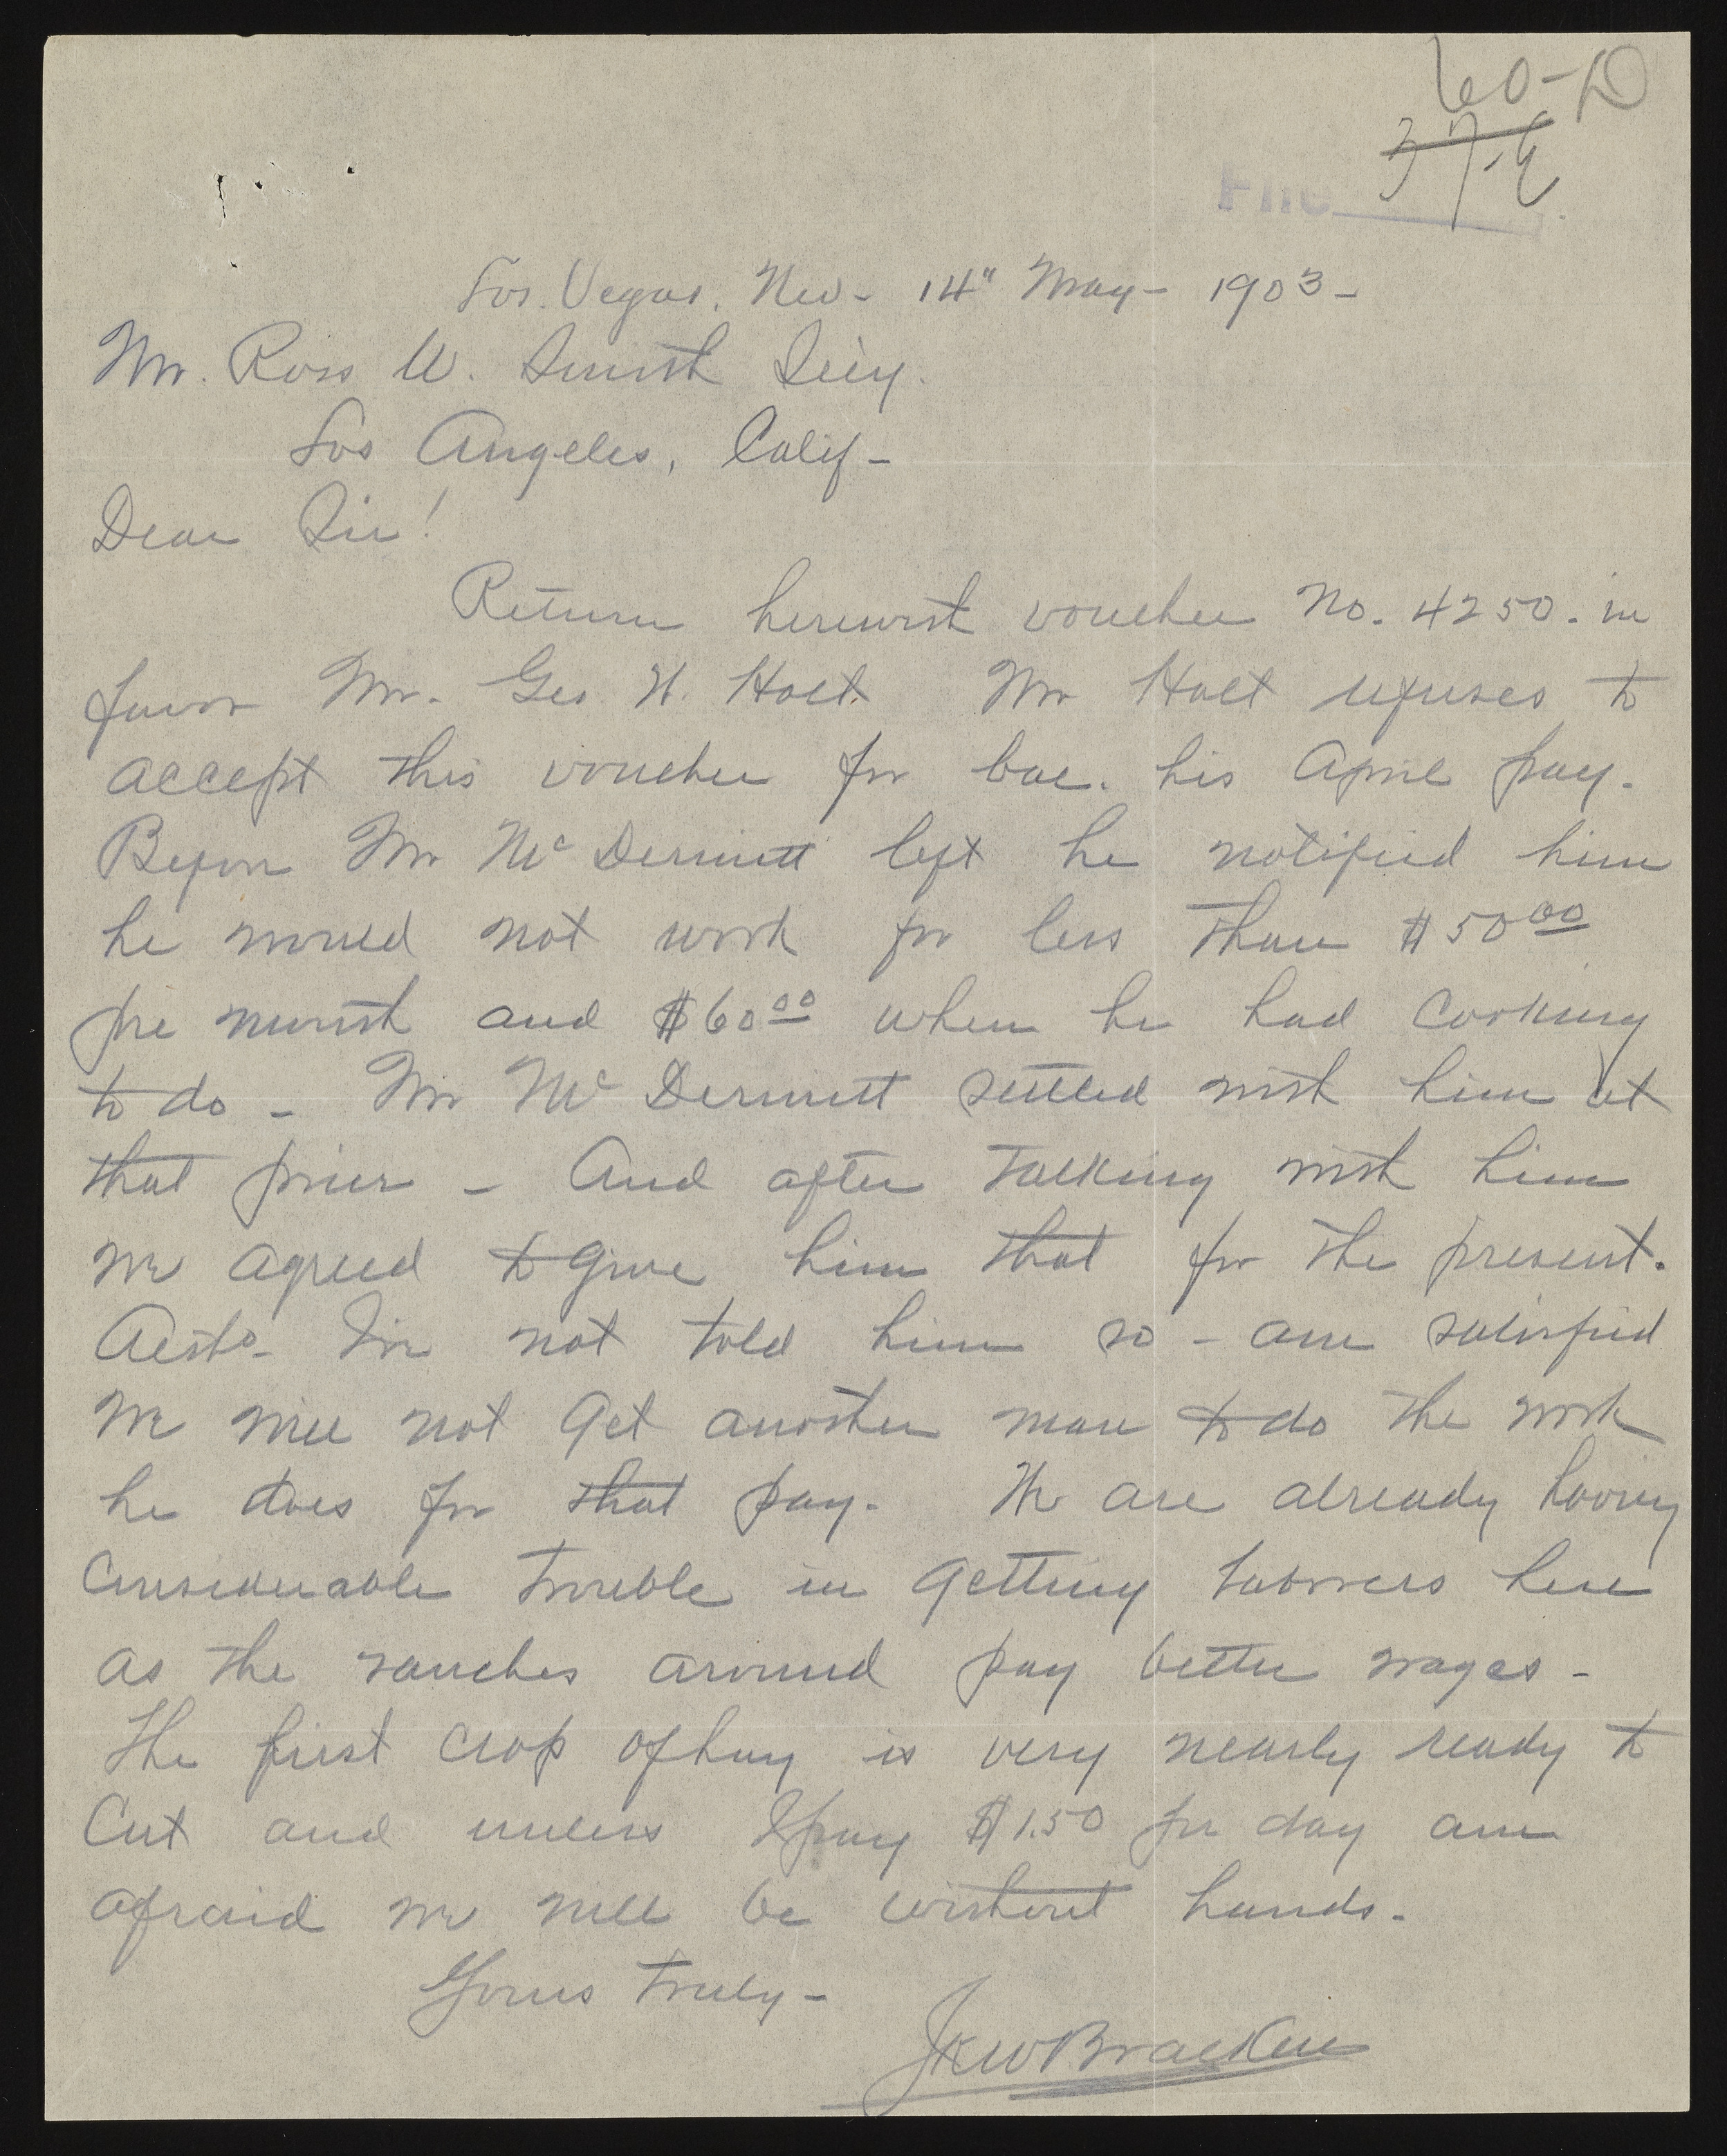 60-D
37-6
File
Los. Vegas. Nev- 14" May- 1903-
Mr. Ross W. Smith Secy.
Los Angeles, Calif-
Dear Sir!
Return herewith voucher No. 4250. in
favor Mr. Geo. H. Holt. Mr Holt refuses to
accept this voucher for bal. his April pay.
Before Mr McDermitt left he notified him
he would not work for less than $50 00
per month and $60 00 when he had cooking
to do - Mr McDermitt settled with him at
that price - And after talking with him
we agreed to give him that for the present.
not told him so - am satisfied
We will not get another man to do the work
he does for that pay. We are already having
considerable trouble in getting laborers here
as the ranches around pay better wages -
The first crop of hay is very nearly ready to
cut and unless I pay $1.50 per day am
afraid we will be without hands.
Yours truly-
JKWBracken